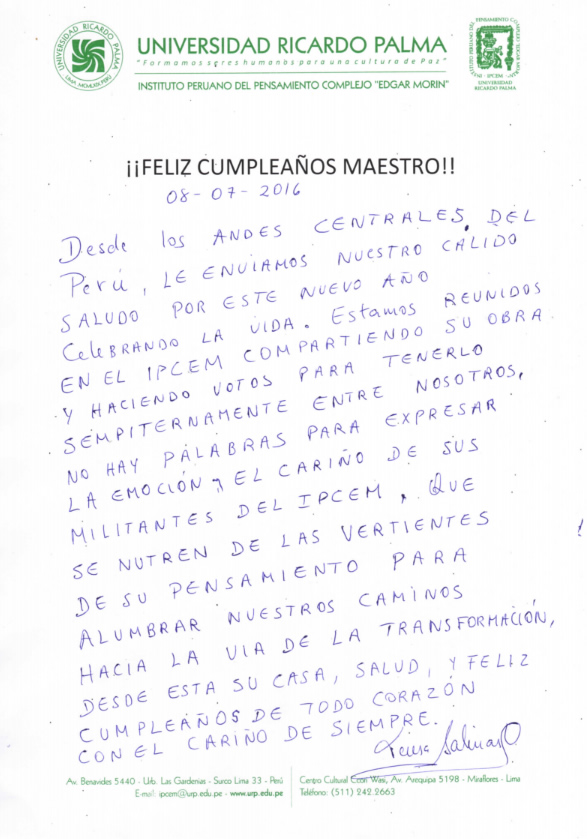 UNIVERSIDAD RICARDO PALMA
LIMA MCMLXIX PERÚ
UNIVERSIDAD RICARDO PALMA
"Formamos seres humanos para una cultura de Paz"
INSTITUTO PERUANO DEL PENSAMIENTO COMPLEJO "EDGAR MORIN"
IPCEM
UNIVERSIDAD
RICARDO PALMA
¡¡FELIZ CUMPLEAÑOS MAESTRO!!
08-07-2016
Desde los ANDES CENTRALES DEL
Perú, LE ENVIAMOS NUESTRO CÁLIDO
SALUDO POR ESTE NUEVO AÑO
CeleBRANDO LA VIDA. Estamos REUNIDOS
EN EL IPCEM COMPARTIENDO SU OBRA
Y HACIENDO VOTOS PARA TENERLO
SEMPITERNAMENTE ENTRE NOSOTROS,
NO HAY PALABRAS PARA EXPRESAR
LA EMOCIÓN Y EL CARIÑO DE SUS
MILITANTES DEL IPCEM, QUE
SE NUTREN DE LAS VERTIENTES
DE SU PENSAMIENTO PARA
ALUMBRAR NUESTROS CAMINOS
HACIA LA VIA DE LA TRANSFORMACIÓN,
DESDE ESTA SU CASA, SALUD, Y FELIZ
CUMPLEAÑOS DE TODO CORAZÓN
CON EL CARIÑO DE SIEMPRE.
Salinas
Av. Benavides 5440 - Urb. Las Gardenias - Surco Lima 33 - Perú
E-mail: ipcem@urp.edu.pe - www.urp.edu.pe
Centro Cultural Ccori Wasi, Av. Arequipa 5198 - Miraflores - Lima
Teléfono: (511) 242.2663